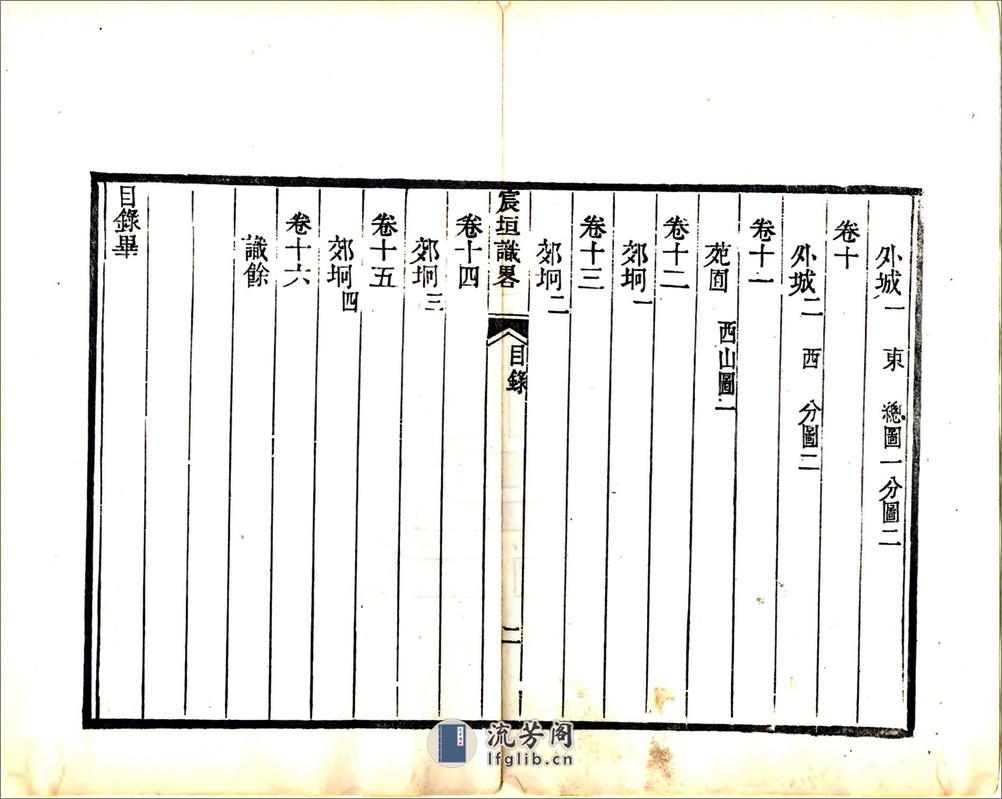 外城一　東　總圖一分圖二
卷十
外城二　西　分圖二
卷十一
苑囿　西山圖一
卷十二
郊坰一
卷十三
郊坰二
宸垣識畧　目錄　二
卷十四
郊坰三
卷十五
郊坰四
卷十六
識餘
目錄畢
流芳阁
lfglib.cn